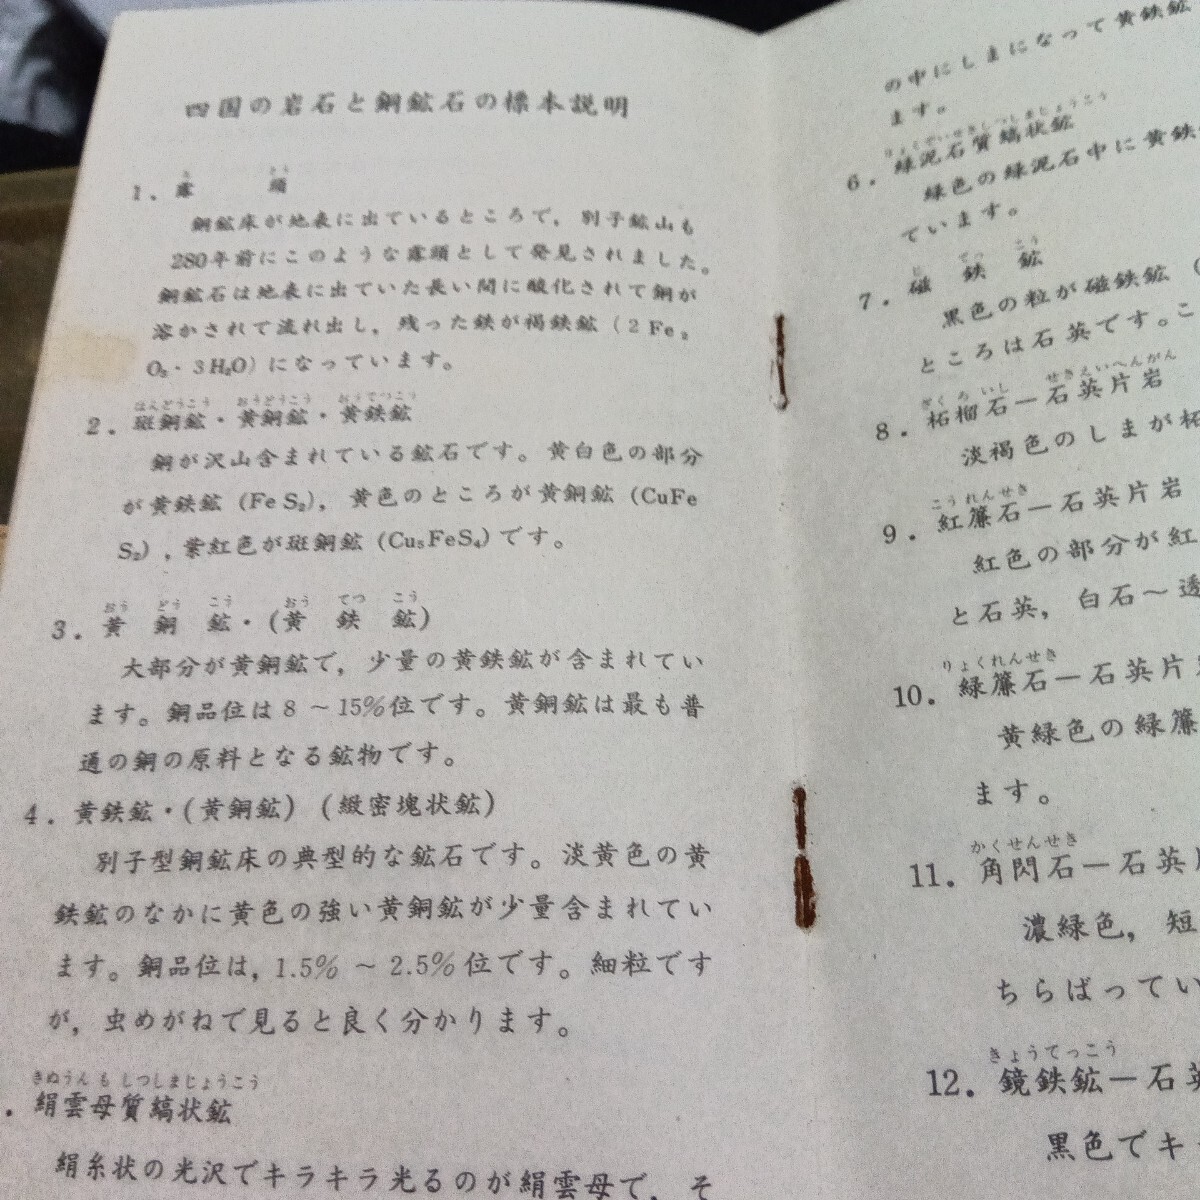 四国の岩石と銅鉱石の標本説明
1. 露頭
ろ とう
銅鉱床が地表に出ているところで，別子鉱山も
280年前にこのような露頭として発見されました。
銅鉱石は地表に出ていた長い間に酸化されて銅が
溶かされて流れ出し，残った鉄が褐鉄鉱（2Fe₂
O₃・3H₂O）になっています。
はんどうこう おうどうこう おうてつこう
2. 斑銅鉱・黄銅鉱・黄鉄鉱
銅が沢山含まれている鉱石です。黄白色の部分
が黄鉄鉱（FeS₂），黄色のところが黄銅鉱（CuFe
S₂），紫紅色が斑銅鉱（Cu₅FeS₄）です。
おう どう こう おう てつ こう
3. 黄銅鉱・(黄鉄鉱)
大部分が黄銅鉱で，少量の黄鉄鉱が含まれてい
ます。銅品位は8～15%位です。黄銅鉱は最も普
通の銅の原料となる鉱物です。
4. 黄鉄鉱・(黄銅鉱) (緻密塊状鉱)
別子型銅鉱床の典型的な鉱石です。淡黄色の黄
鉄鉱のなかに黄色の強い黄銅鉱が少量含まれてい
ます。銅品位は，1.5%～2.5%位です。細粒です
が，虫めがねで見ると良く分かります。
きぬうんも しつしまじょうこう
. 絹雲母質縞状鉱
絹糸状の光沢でキラキラ光るのが絹雲母で，そ
の中にしまになって黄鉄鉱
ます。
りょくでいせきしつしまじょうこう
6. 緑泥石質縞状鉱
緑色の緑泥石中に黄鉄
ています。
じ てつ こう
7. 磁鉄鉱
黒色の粒が磁鉄鉱（
ところは石英です。こ
ざくろいし せきえいへんがん
8. 柘榴石－石英片岩
淡褐色のしまが柘
こうれんせき
9. 紅簾石－石英片岩
紅色の部分が紅
と石英，白石～透
りょくれんせき
10. 緑簾石－石英片岩
黄緑色の緑簾
ます。
かくせんせき
11. 角閃石－石英片
濃緑色，短
ちらばってい
きょうてっこう
12. 鏡鉄鉱－石英
黒色でキ